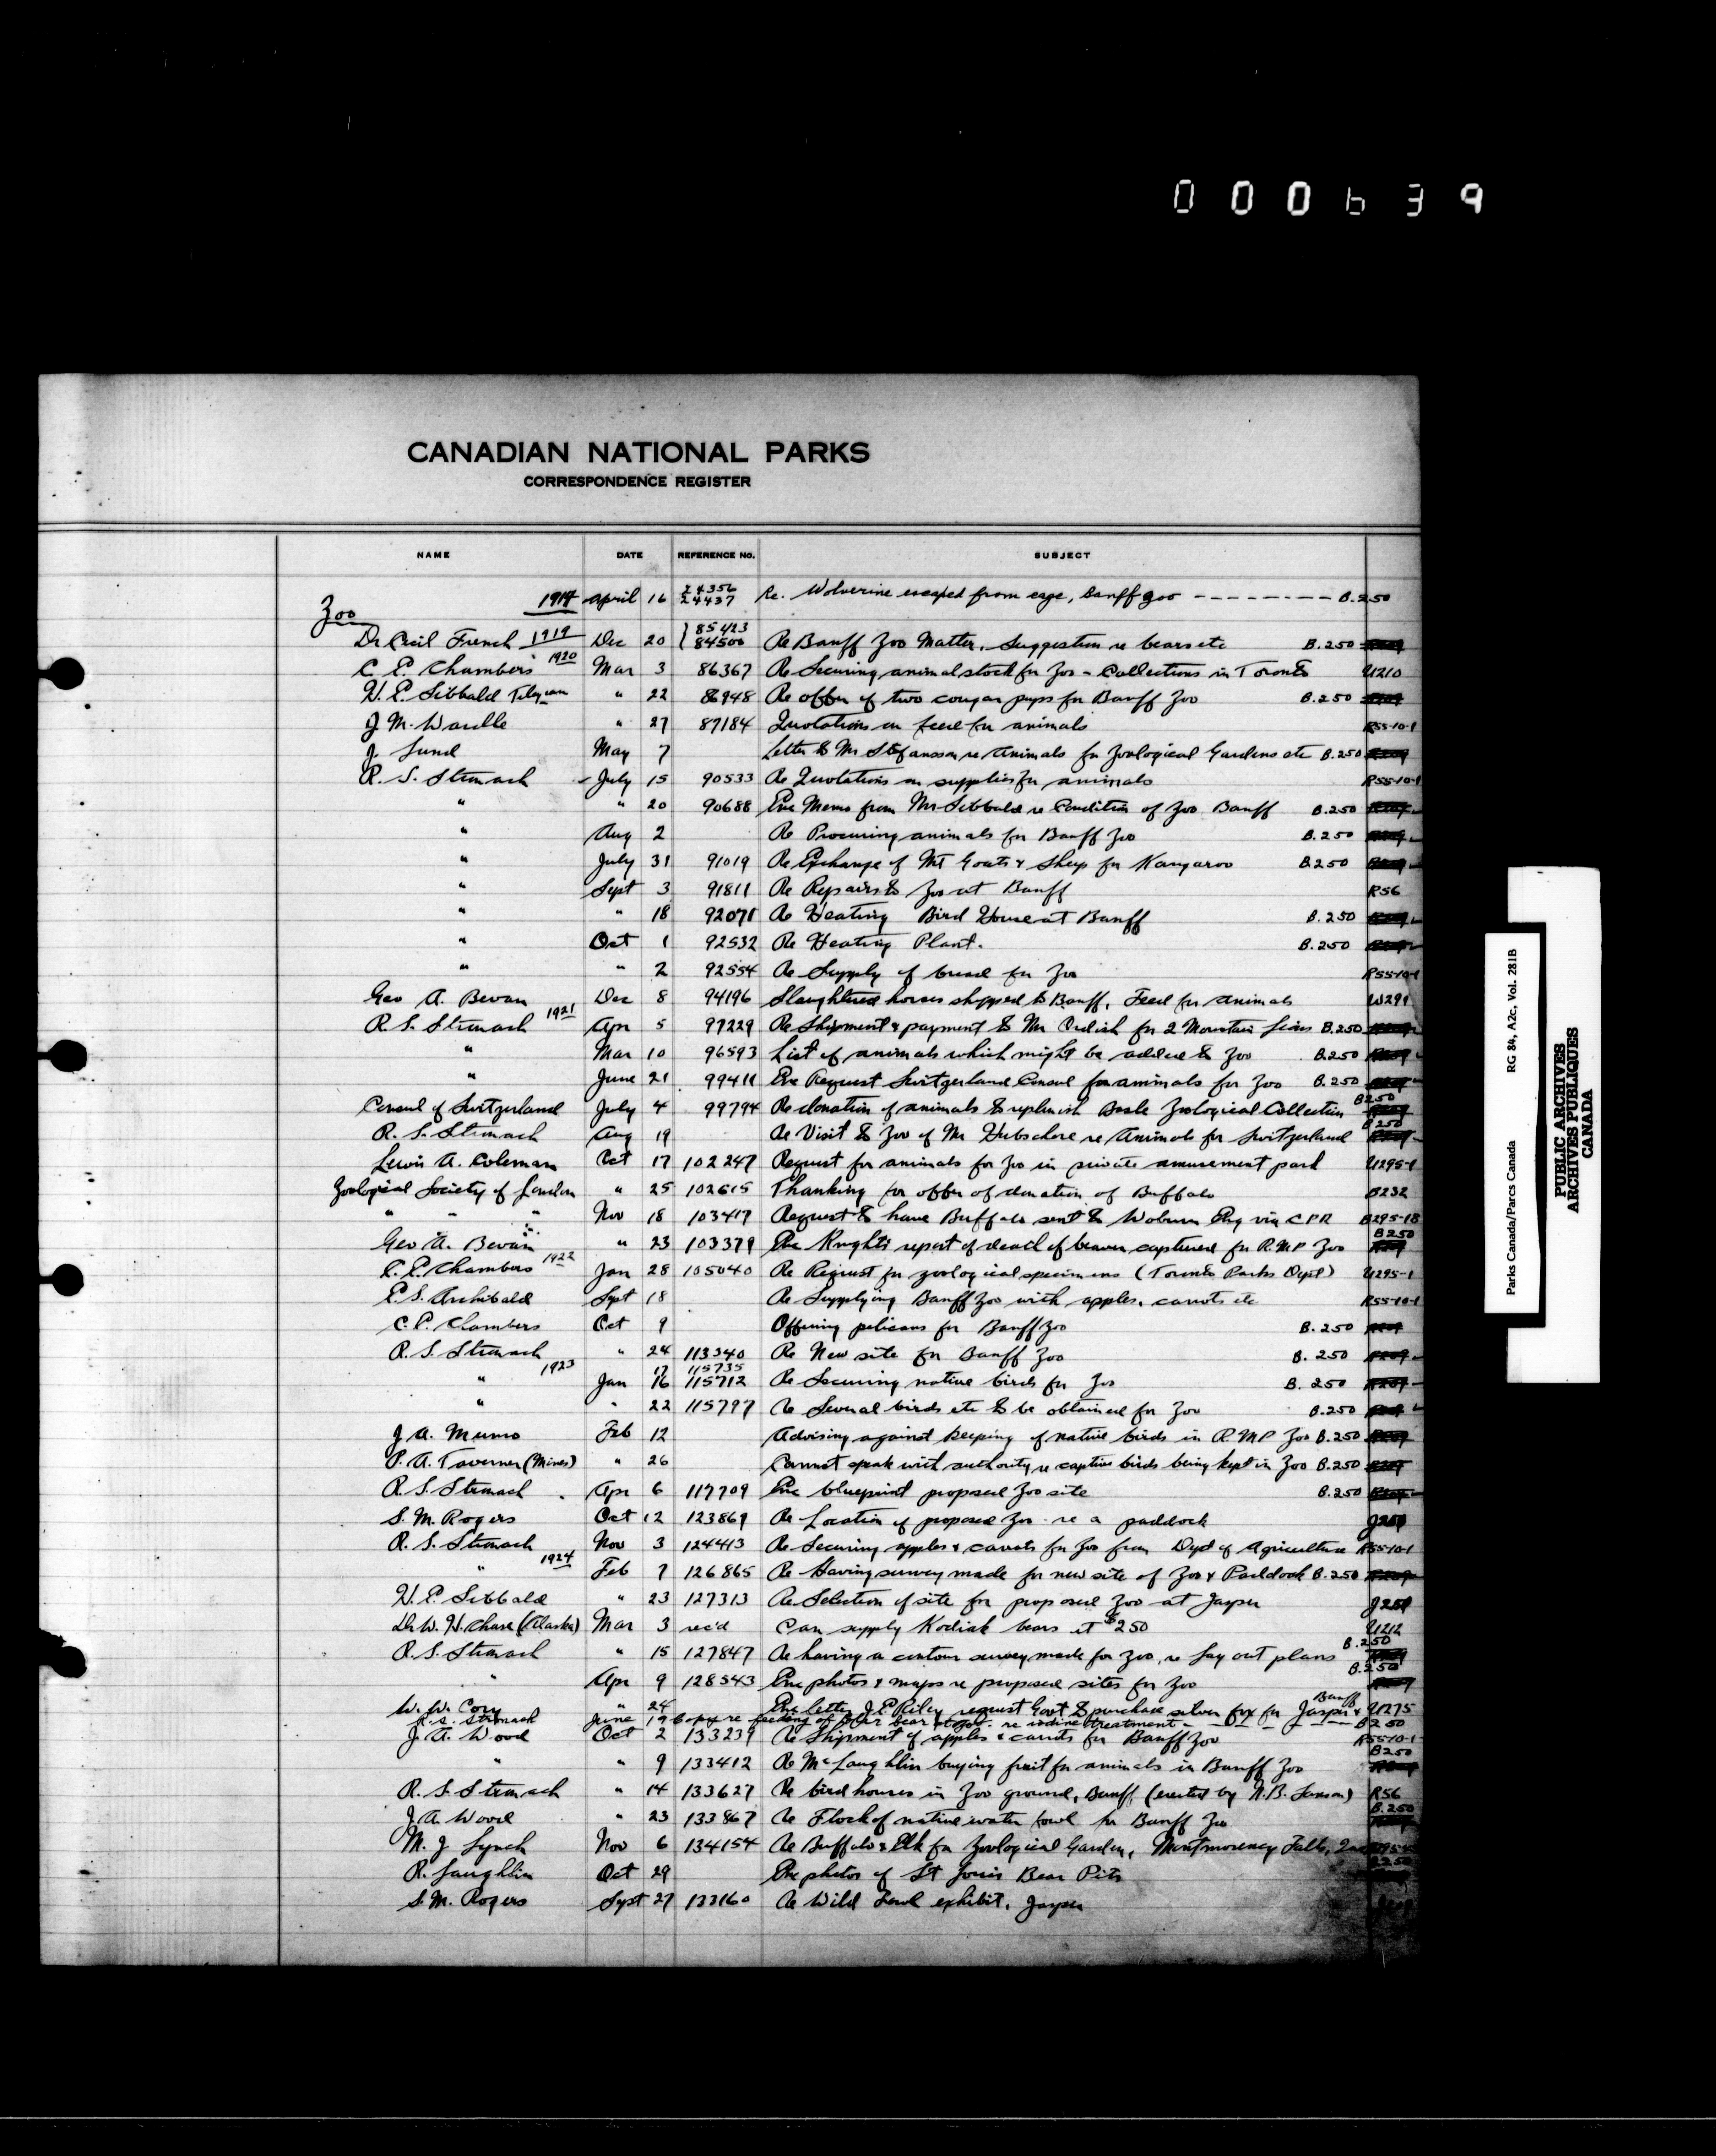 000639
CANADIAN NATIONAL PARKS
CORRESPONDENCE REGISTER
NAME DATE REFERENCE NO. SUBJECT
Zoo 1914 April 16 24356 24437 Re. Wolverine escaped from cage, Banff zoo B.250
Dr Cecil French 1919 Dec 20 85423 84500 Re Banff Zoo Matter. Suggestion re bears etc B.250
C. E. Chambers 1920 Mar 3 86367 Re Securing animal stock for Zoo - Collections in Toronto U210
H. E. Sibbald Telegram " 22 86948 Re offer of two cougar pups for Banff Zoo B.250
J. M. Wardle " 27 87184 Quotations on feed for animals R55-10-1
J. Lund May 7 Letter to Mr Stefansson re Animals for Zoological Gardens etc B.250
R. S. Stronach July 15 90533 Re Quotations on supplies for animals R55-10-1
" " 20 90688 Enc Memo from Mr Sibbald re Condition of Zoo Banff B.250
" Aug 2 Re Procuring animals for Banff Zoo B.250
" July 31 91019 Re Exchange of Mt Goats & Sheep for Kangaroo B.250
" Sept 3 91811 Re Repairs to Zoo at Banff R56
" " 18 92071 Re Heating Bird House at Banff B.250
" Oct 1 92532 Re Heating Plant. B.250
" " 2 92554 Re Supply of bread for Zoo R55-10-1
Geo A. Bevan Dec 8 94196 Slaughtered horses shipped to Banff. Feed for animals W291
R. S. Stronach 1921 Apr 5 97229 Re Shipment & payment to Mr for 2 Mountain Lions B.250
" Mar 10 96593 List of animals which might be added to Zoo B.250
" June 21 99411 Enc Request Switzerland Consul for animals for Zoo B.250
Consul of Switzerland July 4 99794 Re donation of animals to replenish Basle Zoological Collection B250
R. S. Stronach Aug 19 Re Visit to Zoo of Mr Hubschere re Animals for Switzerland B250
Lewis A. Coleman Oct 17 102247 Request for animals for Zoo in private amusement park U295-1
Zoological Society of London " 25 102615 Thanking for offer of donation of Buffalo B232
" " " Nov 18 103417 Request to have Buffalo sent to Woburn Eng via CPR B295-18
Geo A. Bevan " 23 103379 Enc Knights report of death of beaver captured for R.M.P Zoo B250
C. E. Chambers 1922 Jan 28 105040 Re Request for zoological specimens (Toronto Parks Dept) U295-1
E. S. Archibald Sept 18 Re Supplying Banff Zoo with apples, carrots etc R55-10-1
C. P. Chambers Oct 9 Offering pelicans for Banff Zoo B.250
R. S. Stronach " 24 113340 Re New site for Banff Zoo B. 250
" 1923 Jan 17 16 115735 115712 Re Securing native birds for Zoo B. 250
" " 22 115797 Re Several birds etc to be obtained for Zoo B.250
J A. Munro Feb 12 Advising against keeping of native birds in R.M.P Zoo B.250
P. A. Taverner (Mines) " 26 Cannot speak with authority re captive birds being kept in Zoo B.250
R. S. Stronach Apr 6 117709 Enc blueprint proposed Zoo site B.250
S. M. Rogers Oct 12 123869 Re Location of proposed Zoo re a paddock J250
R. S. Stronach Nov 3 124413 Re Securing apples & carrots for Zoo from Dept of Agriculture R55-10-1
" 1924 Feb 7 126865 Re Having survey made for new site of Zoo & Paddock B.250
H. E. Sibbald " 23 127313 Re Selection of site for proposed Zoo at Jasper J250
Dr W. H. Chase (Alaska) Mar 3 rec'd Can supply Kodiak bears at $250 U212
R. S. Stronach " 15 127847 Re having a contour survey made for Zoo, re Lay out plans B.250
" Apr 9 128543 Enc photos & maps re proposed sites for Zoo B.250
W. W. Cory " 24 Enc letter J. E. Riley request Govt to purchase silver fox for Jasper & Banff U275
R. S. Stronach June 19 Copy re feeding of Polar bear & goat. re iodine treatment B250
J. A. Wood Oct 2 133239 Re Shipment of apples & carrots for Banff Zoo R55-10-1
" " 9 133412 Re McLaughlin buying fruit for animals in Banff Zoo B250
R. S. Stronach " 14 133627 Re bird houses in Zoo ground, Banff (erected by N.B. Sanson) R56
J. A. Wood " 23 133867 Re Flock of native water fowl for Banff Zoo B.250
M. J. Lynch Nov 6 134154 Re Buffalo & Elk for Zoological Garden, Montmorency Falls,
R. Laughlin Oct 29 Enc photos of St Louis Bear Pits B250
S. M. Rogers Sept 27 133160 Re Wild Fowl exhibit, Jasper
Parks Canada/Parcs Canada RG 84, A2c, Vol. 281B
PUBLIC ARCHIVES
ARCHIVES PUBLIQUES
CANADA